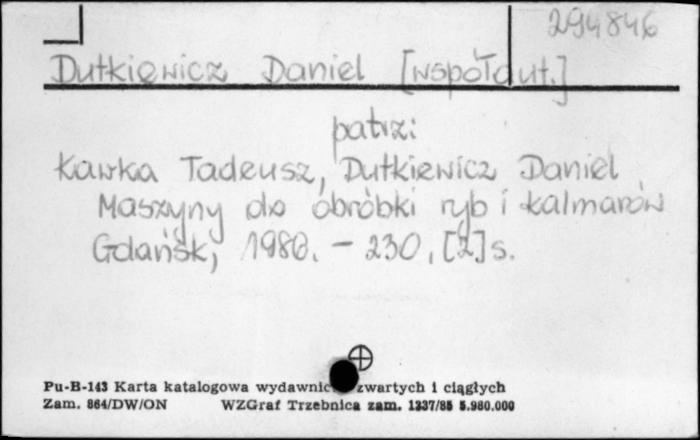 294846
Dutkiewicz Daniel [współaut.]
patrz:
Kawka Tadeusz, Dutkiewicz Daniel
Maszyny do obróbki ryb i kalmarów
Gdańsk, 1980. - 230, [2] s.
Pu-B-143 Karta katalogowa wydawnic zwartych i ciągłych
Zam. 864/DW/ON WZGraf Trzebnica zam. 1337/85 5.980.000